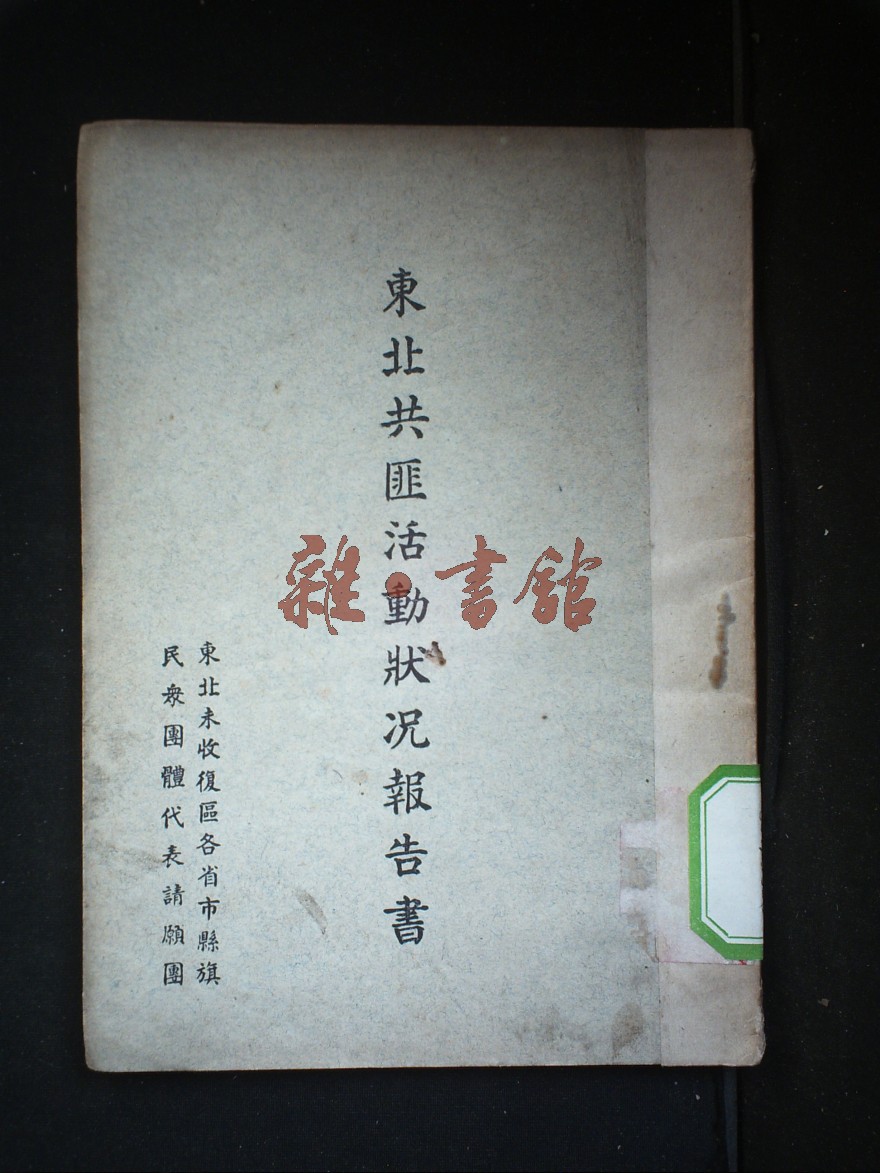 東北共匪活動狀況報告書
東北未收復區各省市縣旗
民衆團體代表請願團
雜·書館